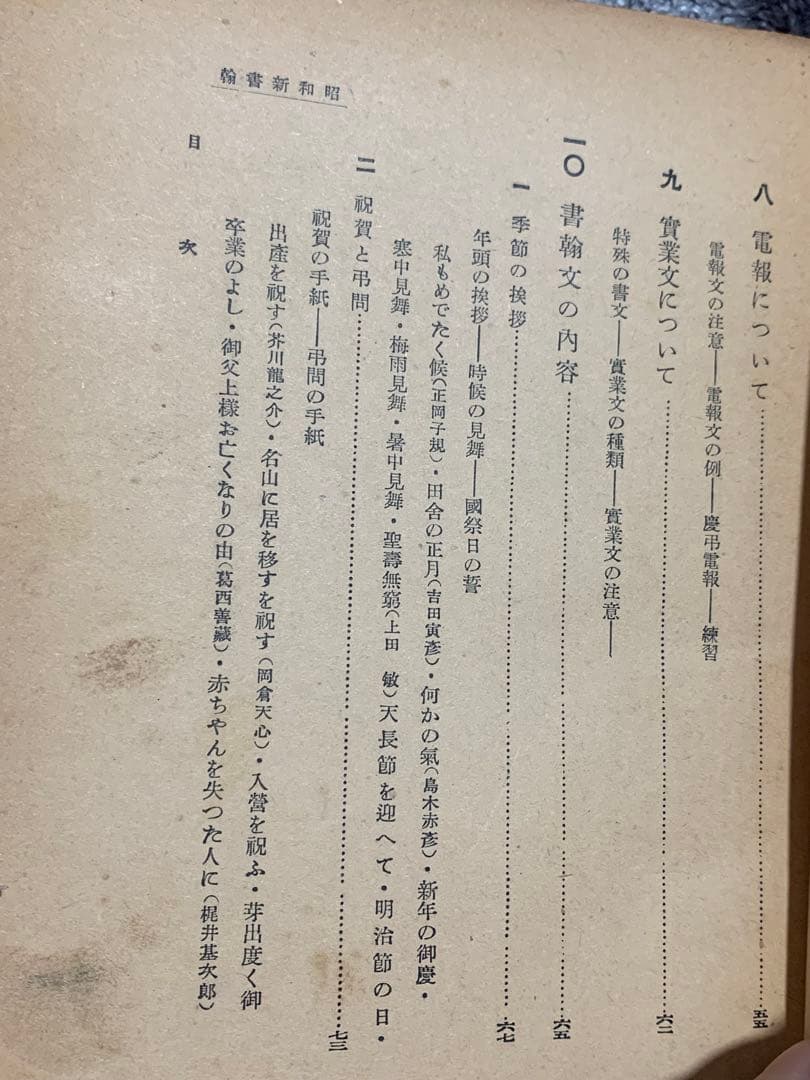 昭和新書翰
八 電報について……五五
電報文の注意——電報文の例——慶弔電報——練習
九 實業文について……六二
特殊の書文——實業文の種類——實業文の注意——
一〇 書翰文の內容……六五
一 季節の挨拶……六七
年頭の挨拶——時候の見舞——國祭日の誓
私もめでたく候(正岡子規)・田舍の正月(吉田寅彥)・何かの氣(島木赤彥)・新年の御慶・
寒中見舞・梅雨見舞・暑中見舞・聖壽無窮(上田 敏)天長節を迎へて・明治節の日・
二 祝賀と弔問……七三
祝賀の手紙——弔問の手紙
出產を祝す(芥川龍之介)・名山に居を移すを祝す(岡倉天心)・入營を祝ふ・芽出度く御
卒業のよし・御父上樣お亡くなりの由(葛西善藏)・赤ちやんを失つた人に(梶井基次郎)
目 次